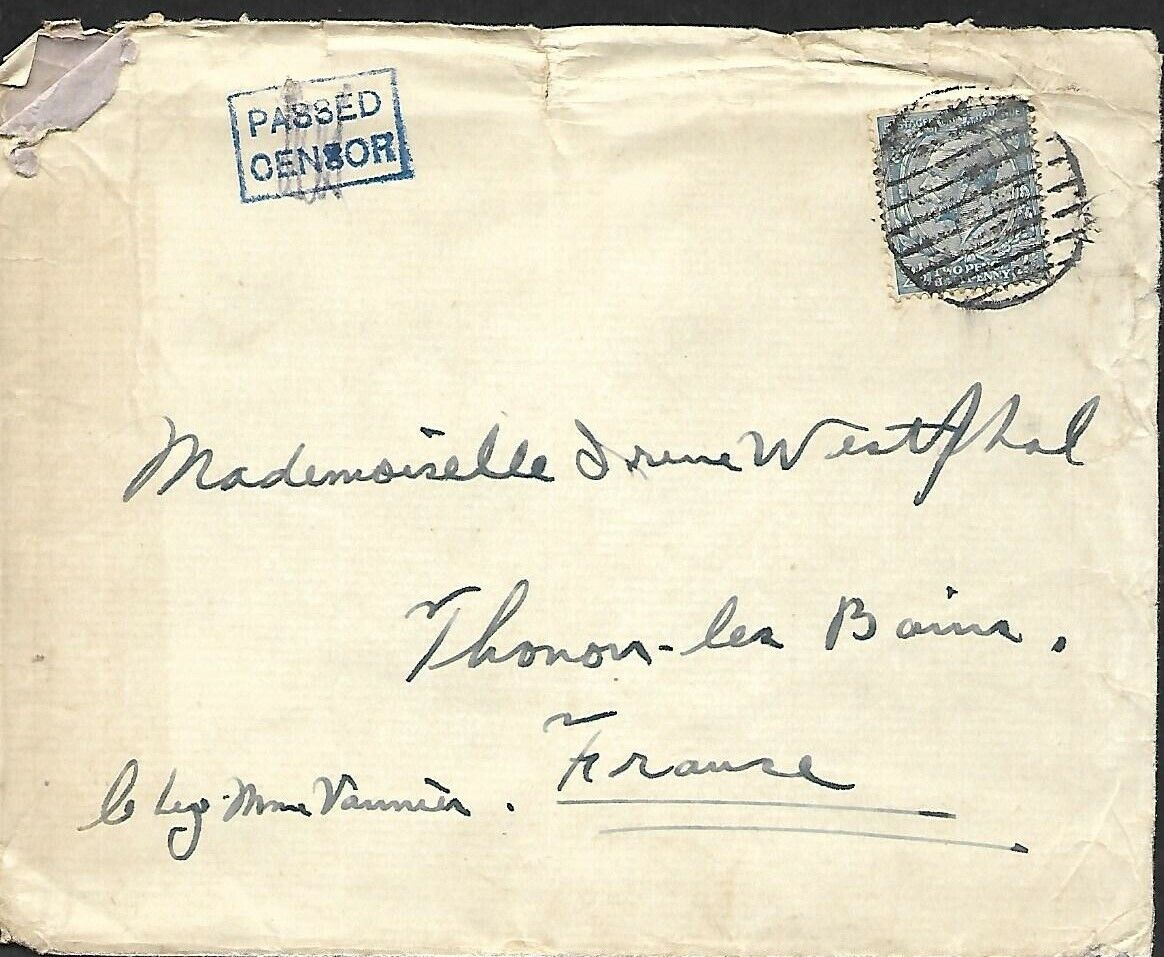 PASSED
CENSOR
TWO PENCE
HALFPENNY
Mademoiselle Irene Westphal
Thonon-les Bains.
France
Chez Mme Vannier.